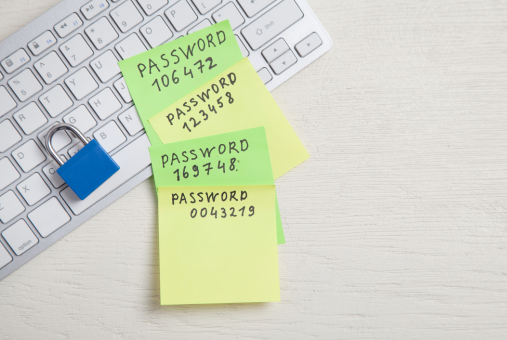 PASSWORD
106472
PASSWORD
123458
PASSWORD
169748.
PASSWORD
0043219